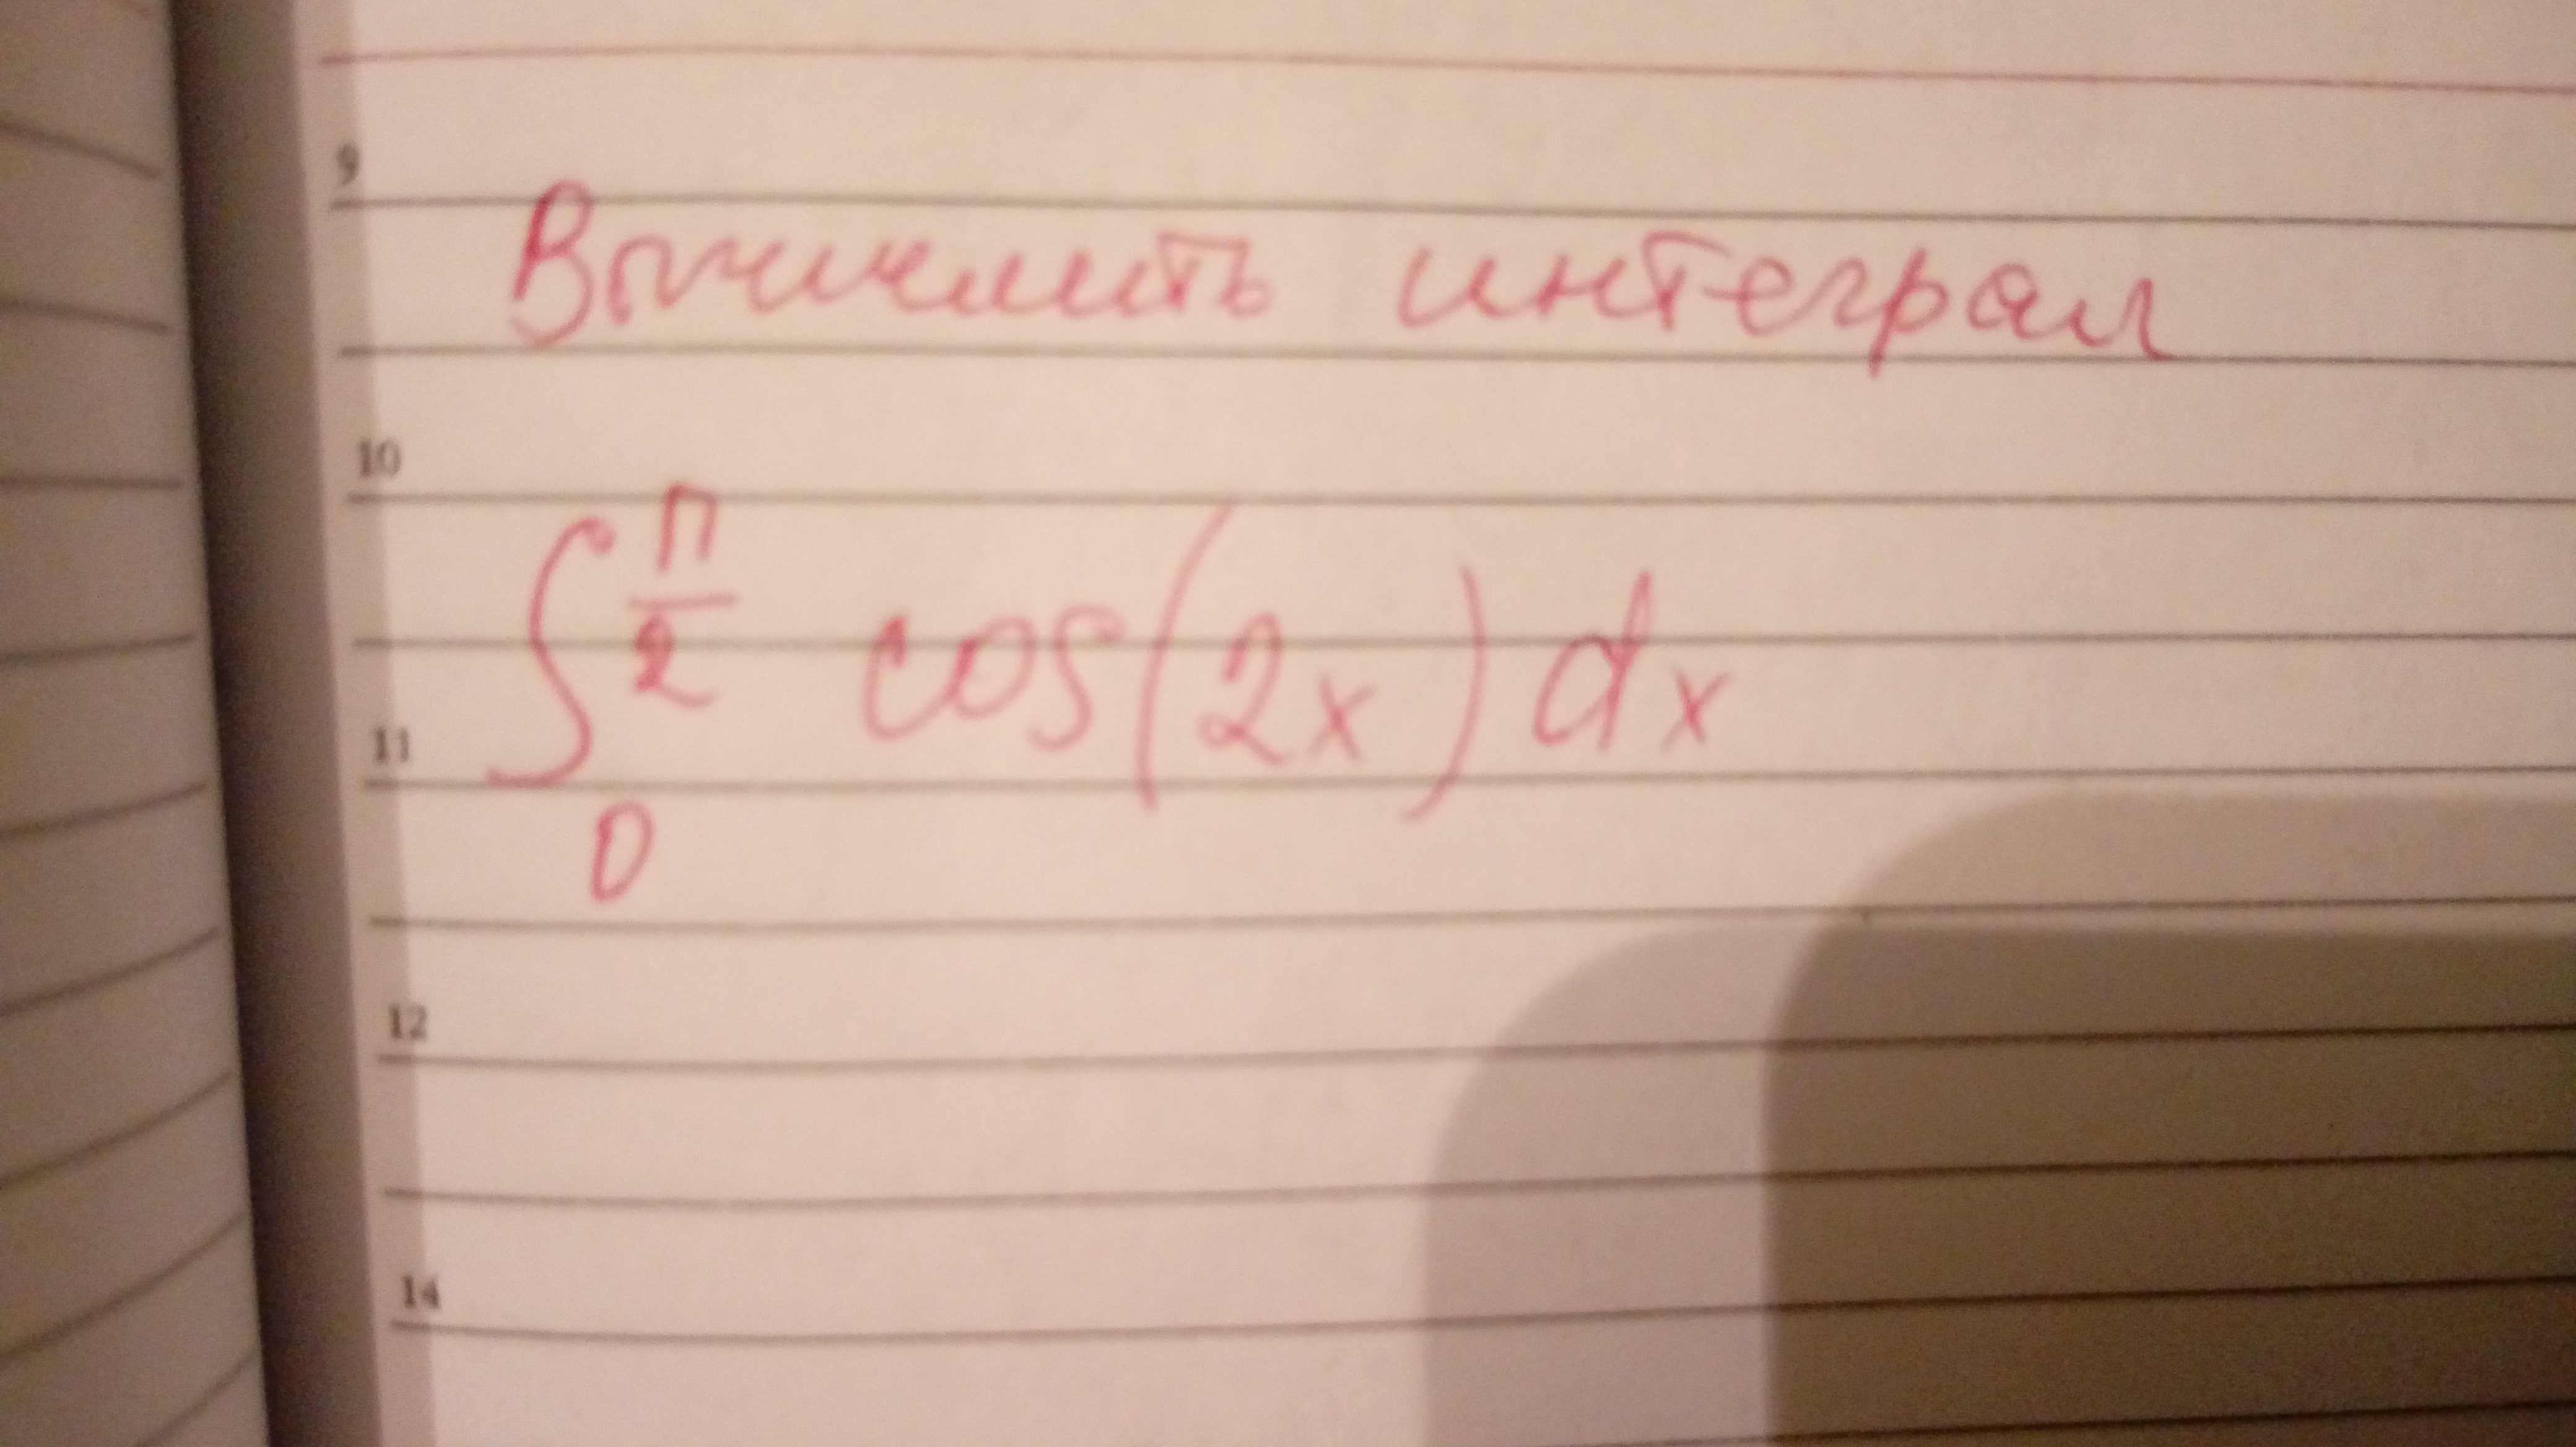 9
Вычислить интеграл
10
∫₀^(π/2) cos(2x) dx
11
12
14